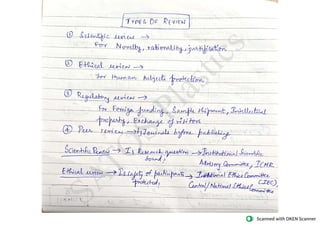 TYPES OF REVIEW
① Scientific review →
For Novelty, rationality, justification.
② Ethical review →
For Human Subjects protection.
③ Regulatory review →
For Foreign funding, Sample Shipment, Intellectual
property, Exchange of visitors
④ Peer review → By Journals before publishing.
Scientific Review → Is Research question sound, → Institutional Scientific
Advisory Committee, ICMR.
Ethical review → Is safety of participants protected, → Institutional Ethics Committee
(IEC),
Central/National Ethical Committee
Scanned with OKEN Scanner